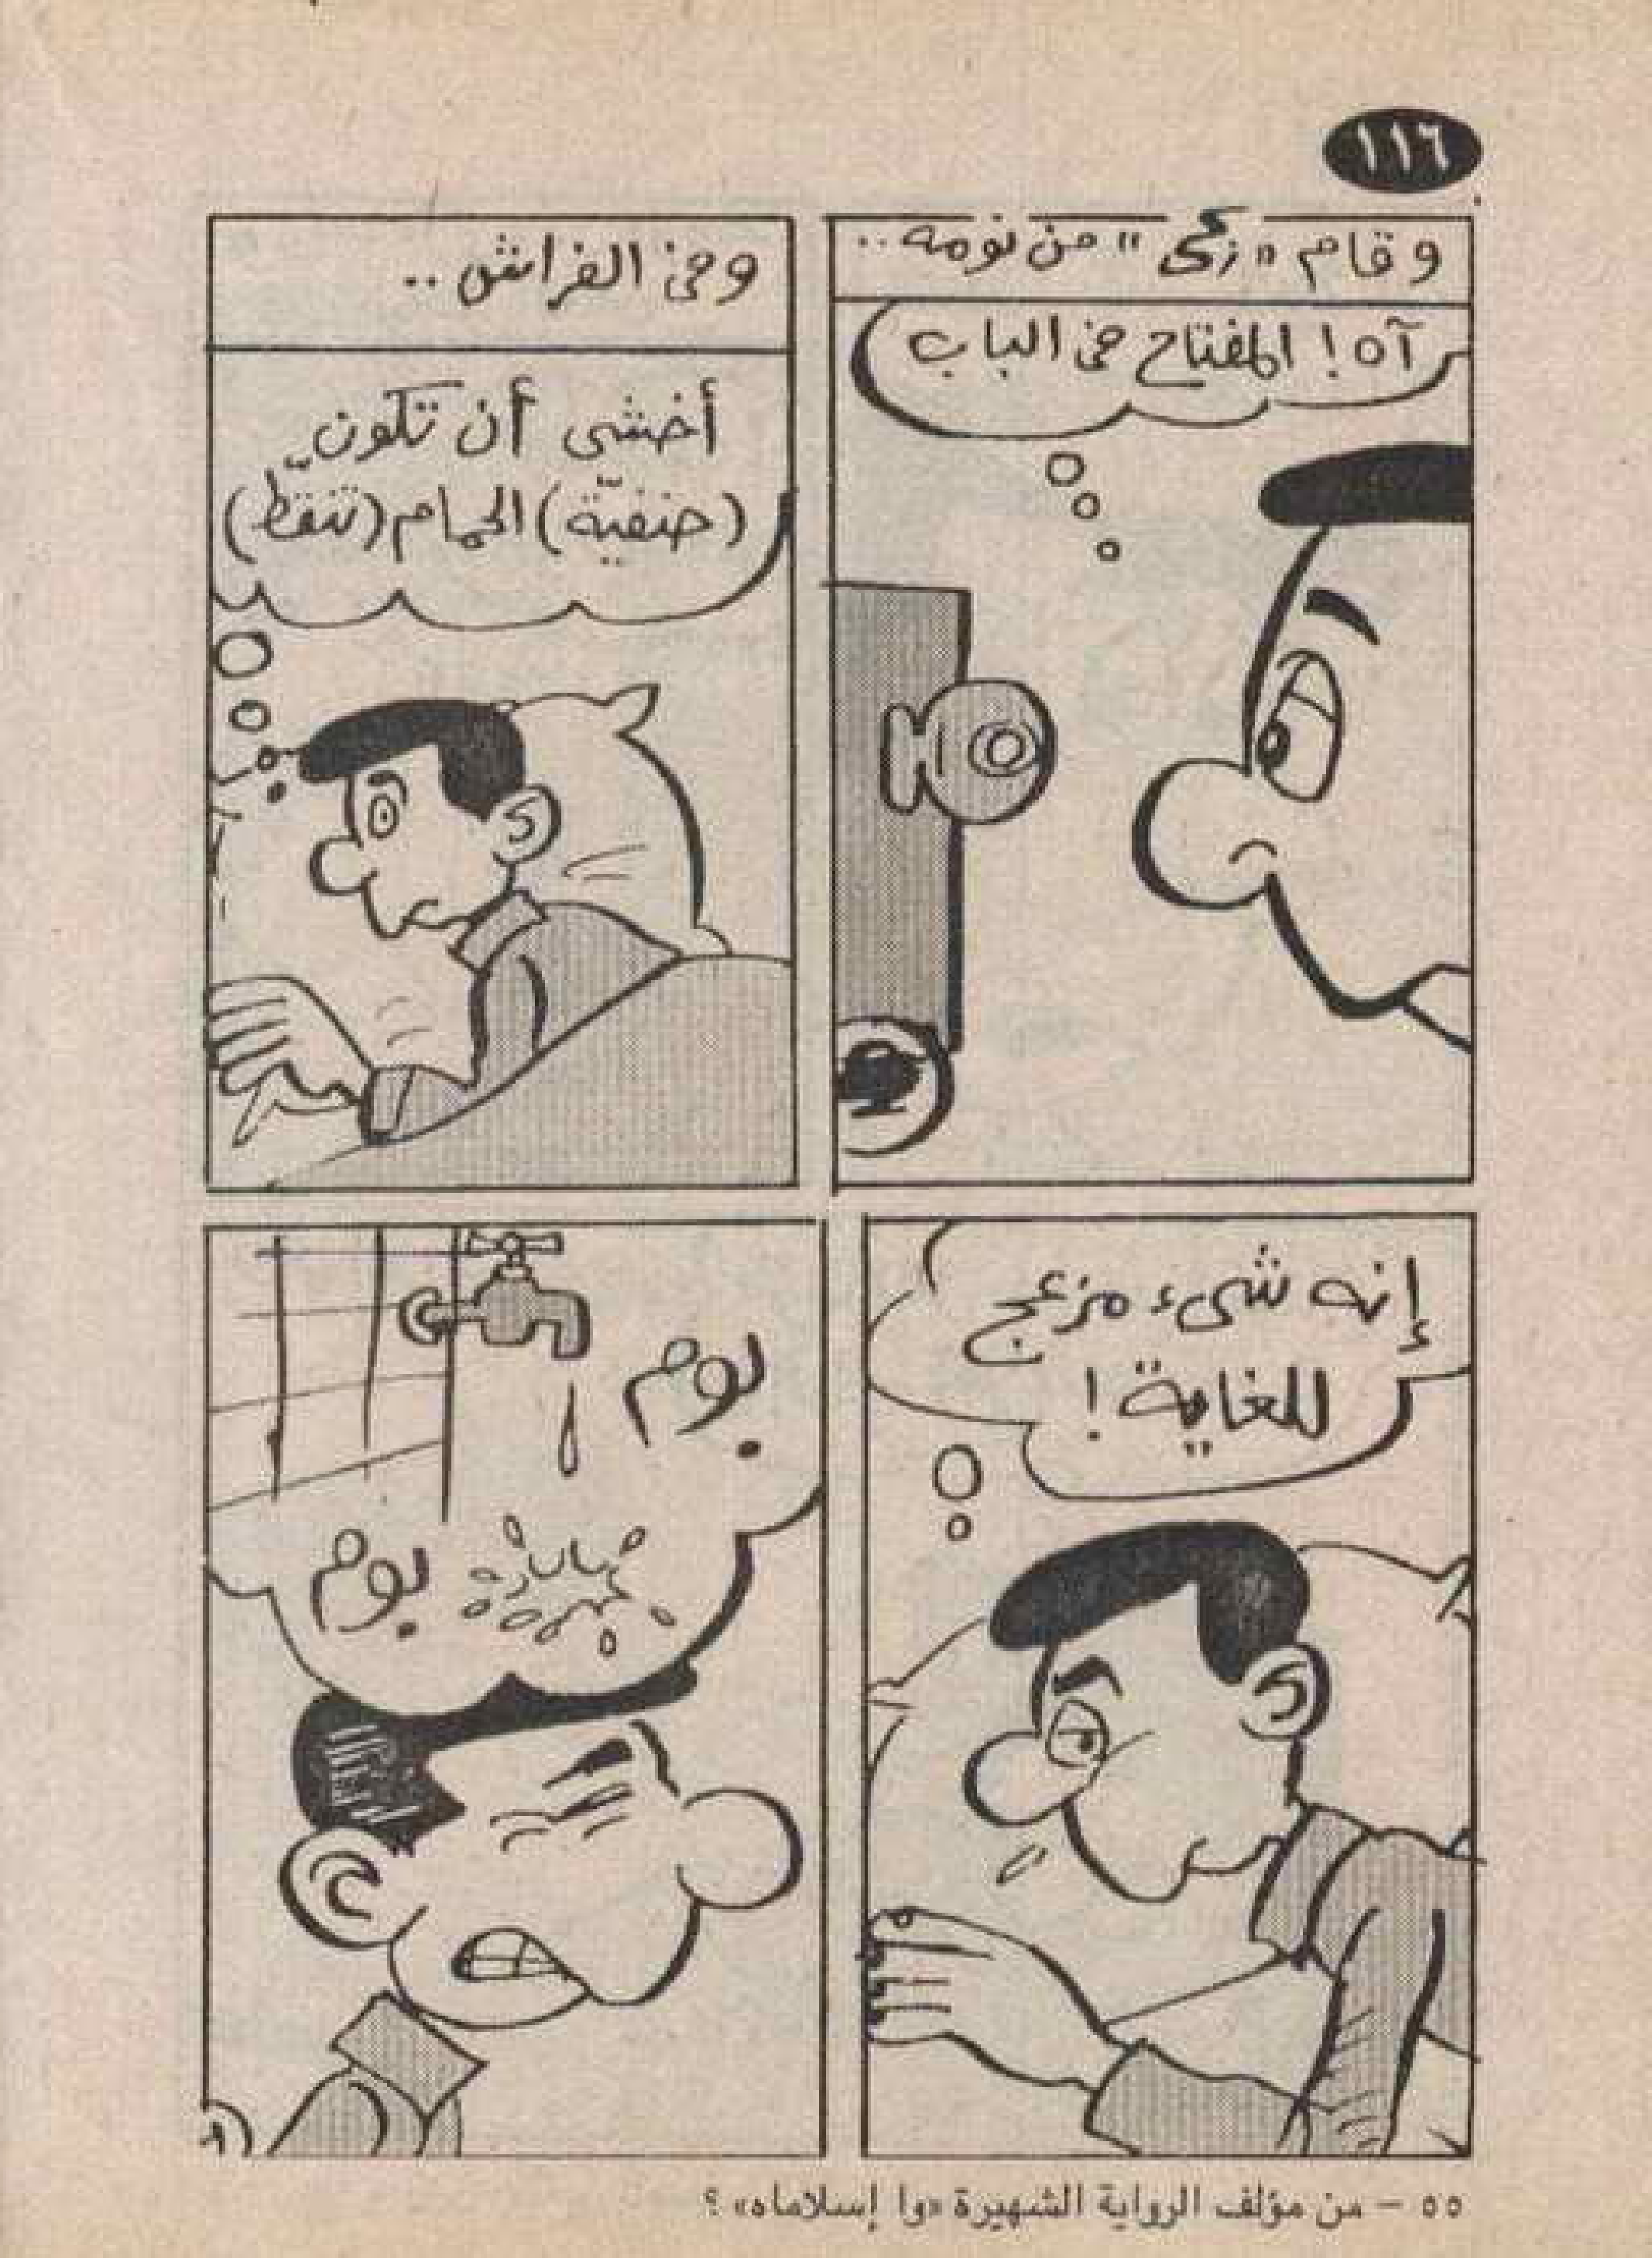 ١١٦
وقام «زكى» من نومه..
آه! المفتاح فى الباب
وفى الفراش..
أخشى أن تكون
(حنفيّة) الحمام (تنقّط)
إنه شىء مزعج
للغاية!
بوم
بوم
٥٥ - من مؤلف الرواية الشهيرة «وا إسلاماه» ؟